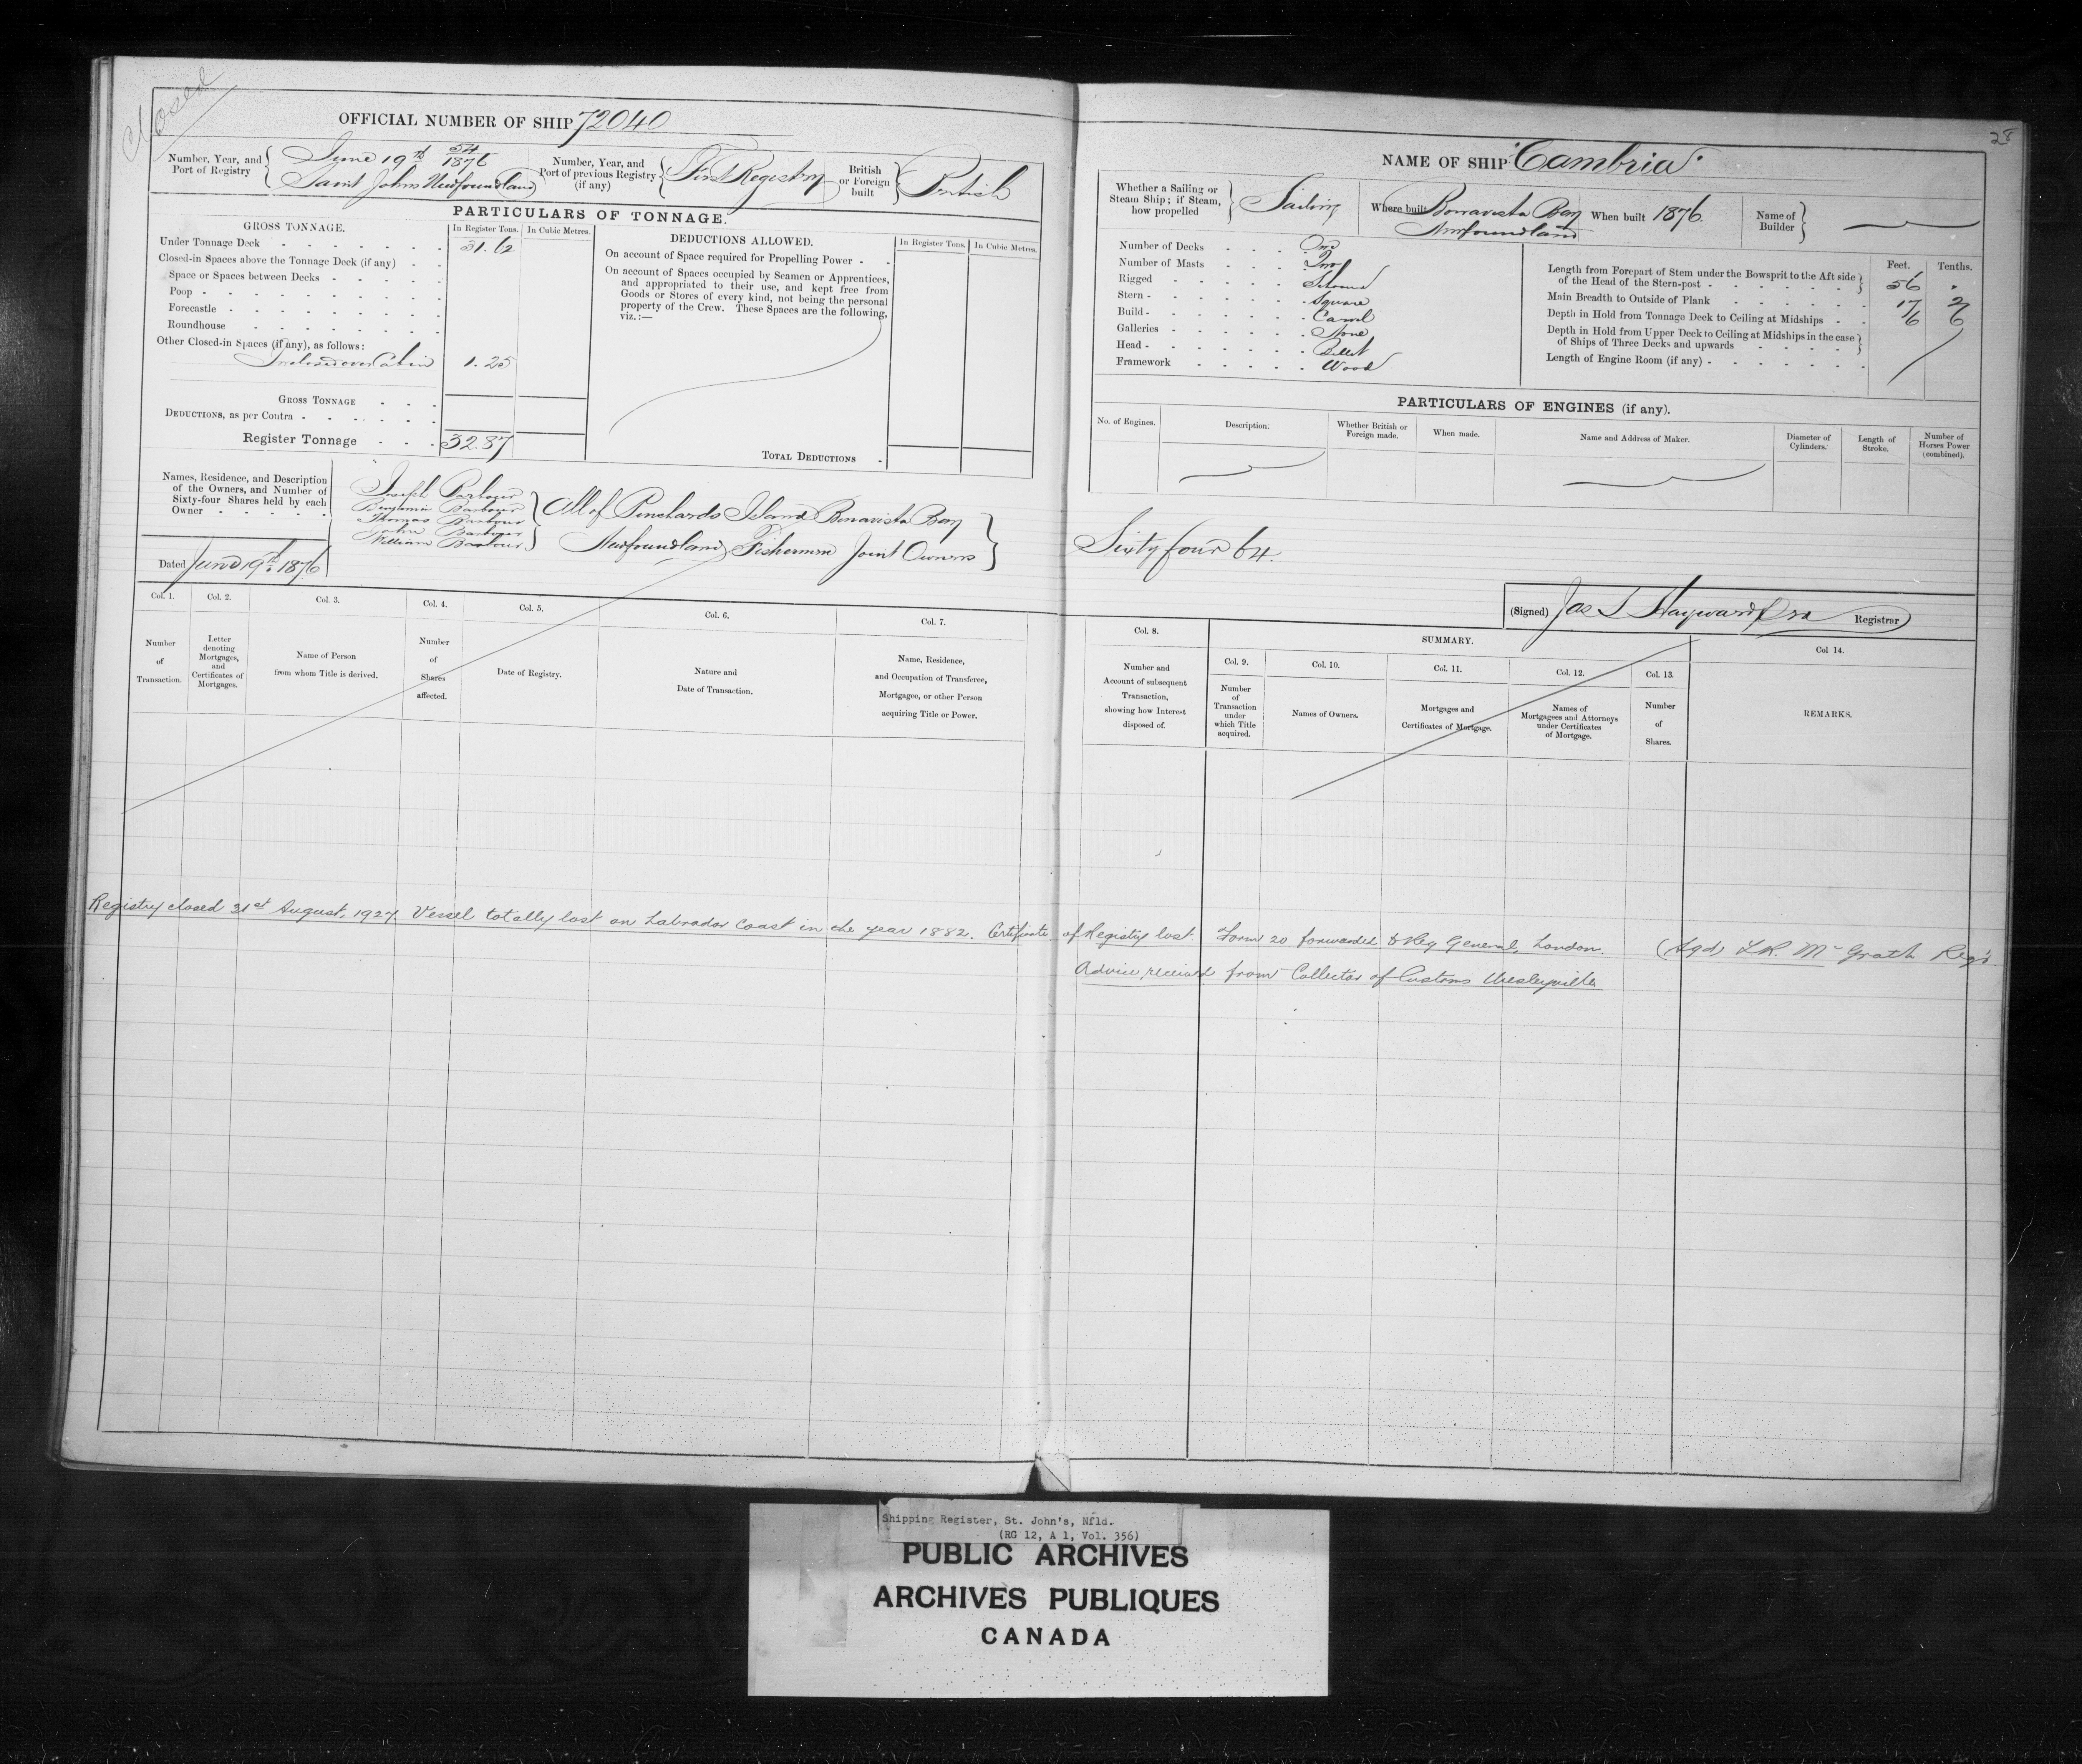 Closed
28
OFFICIAL NUMBER OF SHIP 72040
Number, Year, and Port of Registry
June 19th 54/1876
Saint Johns Newfoundland
Number, Year, and Port of previous Registry (if any)
First Registry
British or Foreign built
British
PARTICULARS OF TONNAGE.
GROSS TONNAGE.
In Register Tons. In Cubic Metres.
Under Tonnage Deck 31.62
Closed-in Spaces above the Tonnage Deck (if any)
Space or Spaces between Decks
Poop
Forecastle
Roundhouse
Other Closed-in Spaces (if any), as follows:
Inclosed over Cabin 1.25
GROSS TONNAGE
DEDUCTIONS, as per Contra
Register Tonnage 32.87
DEDUCTIONS ALLOWED.
In Register Tons. In Cubic Metres.
On account of Space required for Propelling Power
On account of Spaces occupied by Seamen or Apprentices,
and appropriated to their use, and kept free from
Goods or Stores of every kind, not being the personal
property of the Crew. These Spaces are the following,
viz.:—
TOTAL DEDUCTIONS
Names, Residence, and Description
of the Owners, and Number of
Sixty-four Shares held by each
Owner
Joseph Barbour
Benjamin Barbour
Thomas Barbour
John Barbour
William Barbour
All of Pinchards Island Bonavista Bay
Newfoundland Fishermen Joint Owners
Dated June 19th 1876
Col. 1. Col. 2. Col. 3. Col. 4. Col. 5. Col. 6. Col. 7.
Number of Transaction.
Letter denoting Mortgages, and Certificates of Mortgages.
Name of Person from whom Title is derived.
Number of Shares affected.
Date of Registry.
Nature and Date of Transaction.
Name, Residence, and Occupation of Transferee, Mortgagee, or other Person acquiring Title or Power.
NAME OF SHIP "Cambria"
Whether a Sailing or Steam Ship; if Steam, how propelled
Sailing
Where built
Bonavista Bay
Newfoundland
When built 1876.
Name of Builder
Number of Decks One
Number of Masts Two
Rigged Schooner
Stern Square
Build Carvel
Galleries None
Head Billet
Framework Wood
Feet. Tenths.
Length from Forepart of Stem under the Bowsprit to the Aft side
of the Head of the Stern-post 56 .
Main Breadth to Outside of Plank 17 2
Depth in Hold from Tonnage Deck to Ceiling at Midships 6 6
Depth in Hold from Upper Deck to Ceiling at Midships in the case
of Ships of Three Decks and upwards
Length of Engine Room (if any)
PARTICULARS OF ENGINES (if any).
No. of Engines.
Description.
Whether British or Foreign made.
When made.
Name and Address of Maker.
Diameter of Cylinders.
Length of Stroke.
Number of Horses Power (combined).
Sixty four 64.
(Signed) Jas S Hayward Registrar
Col. 8.
Number and Account of subsequent Transaction, showing how Interest disposed of.
SUMMARY.
Col. 9. Col. 10. Col. 11. Col. 12. Col. 13. Col 14.
Number of Transaction under which Title acquired.
Names of Owners.
Mortgages and Certificates of Mortgage.
Names of Mortgagees and Attorneys under Certificates of Mortgage.
Number of Shares.
REMARKS.
Registry closed 21st August, 1927. Vessel totally lost on Labrador Coast in the year 1882. Certificate of Registry lost. Form 20 forwarded to Reg General, London. (Sgd) L.R. McGrath Regr.
Advice received from Collector of Customs Wesleyville
Shipping Register, St. John's, Nfld.
(RG 12, A 1, Vol. 356)
PUBLIC ARCHIVES
ARCHIVES PUBLIQUES
CANADA